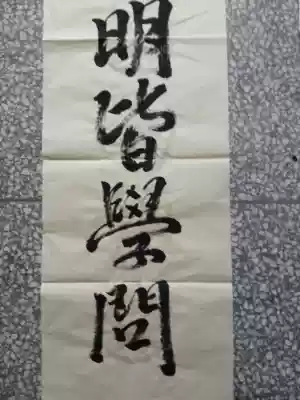 明皆學問